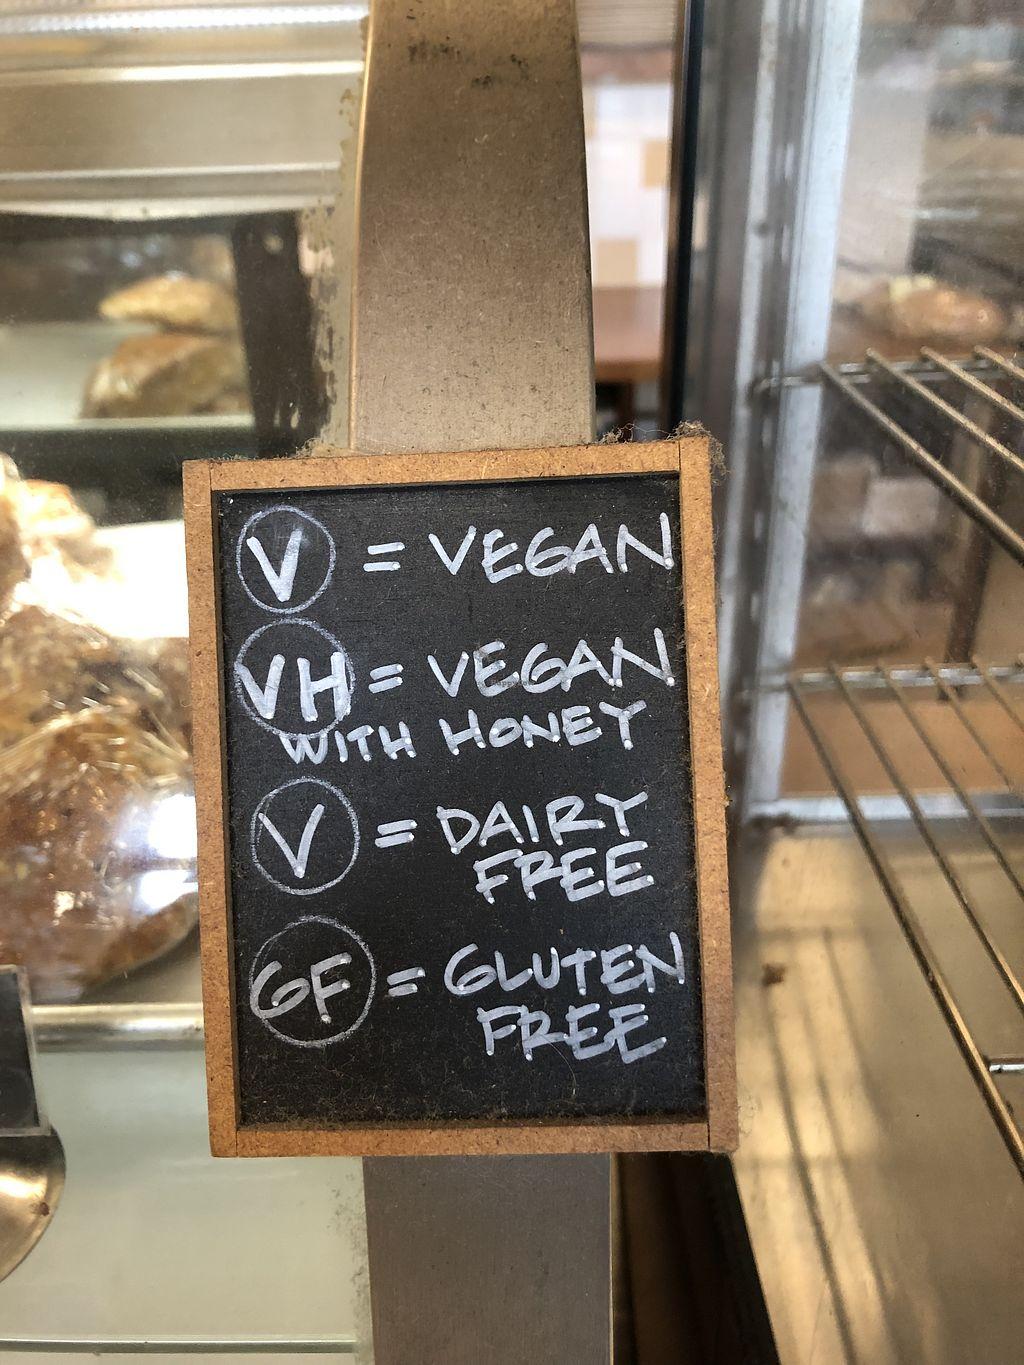 V = VEGAN
VH = VEGAN
WITH HONEY
V = DAIRY
FREE
GF = GLUTEN
FREE